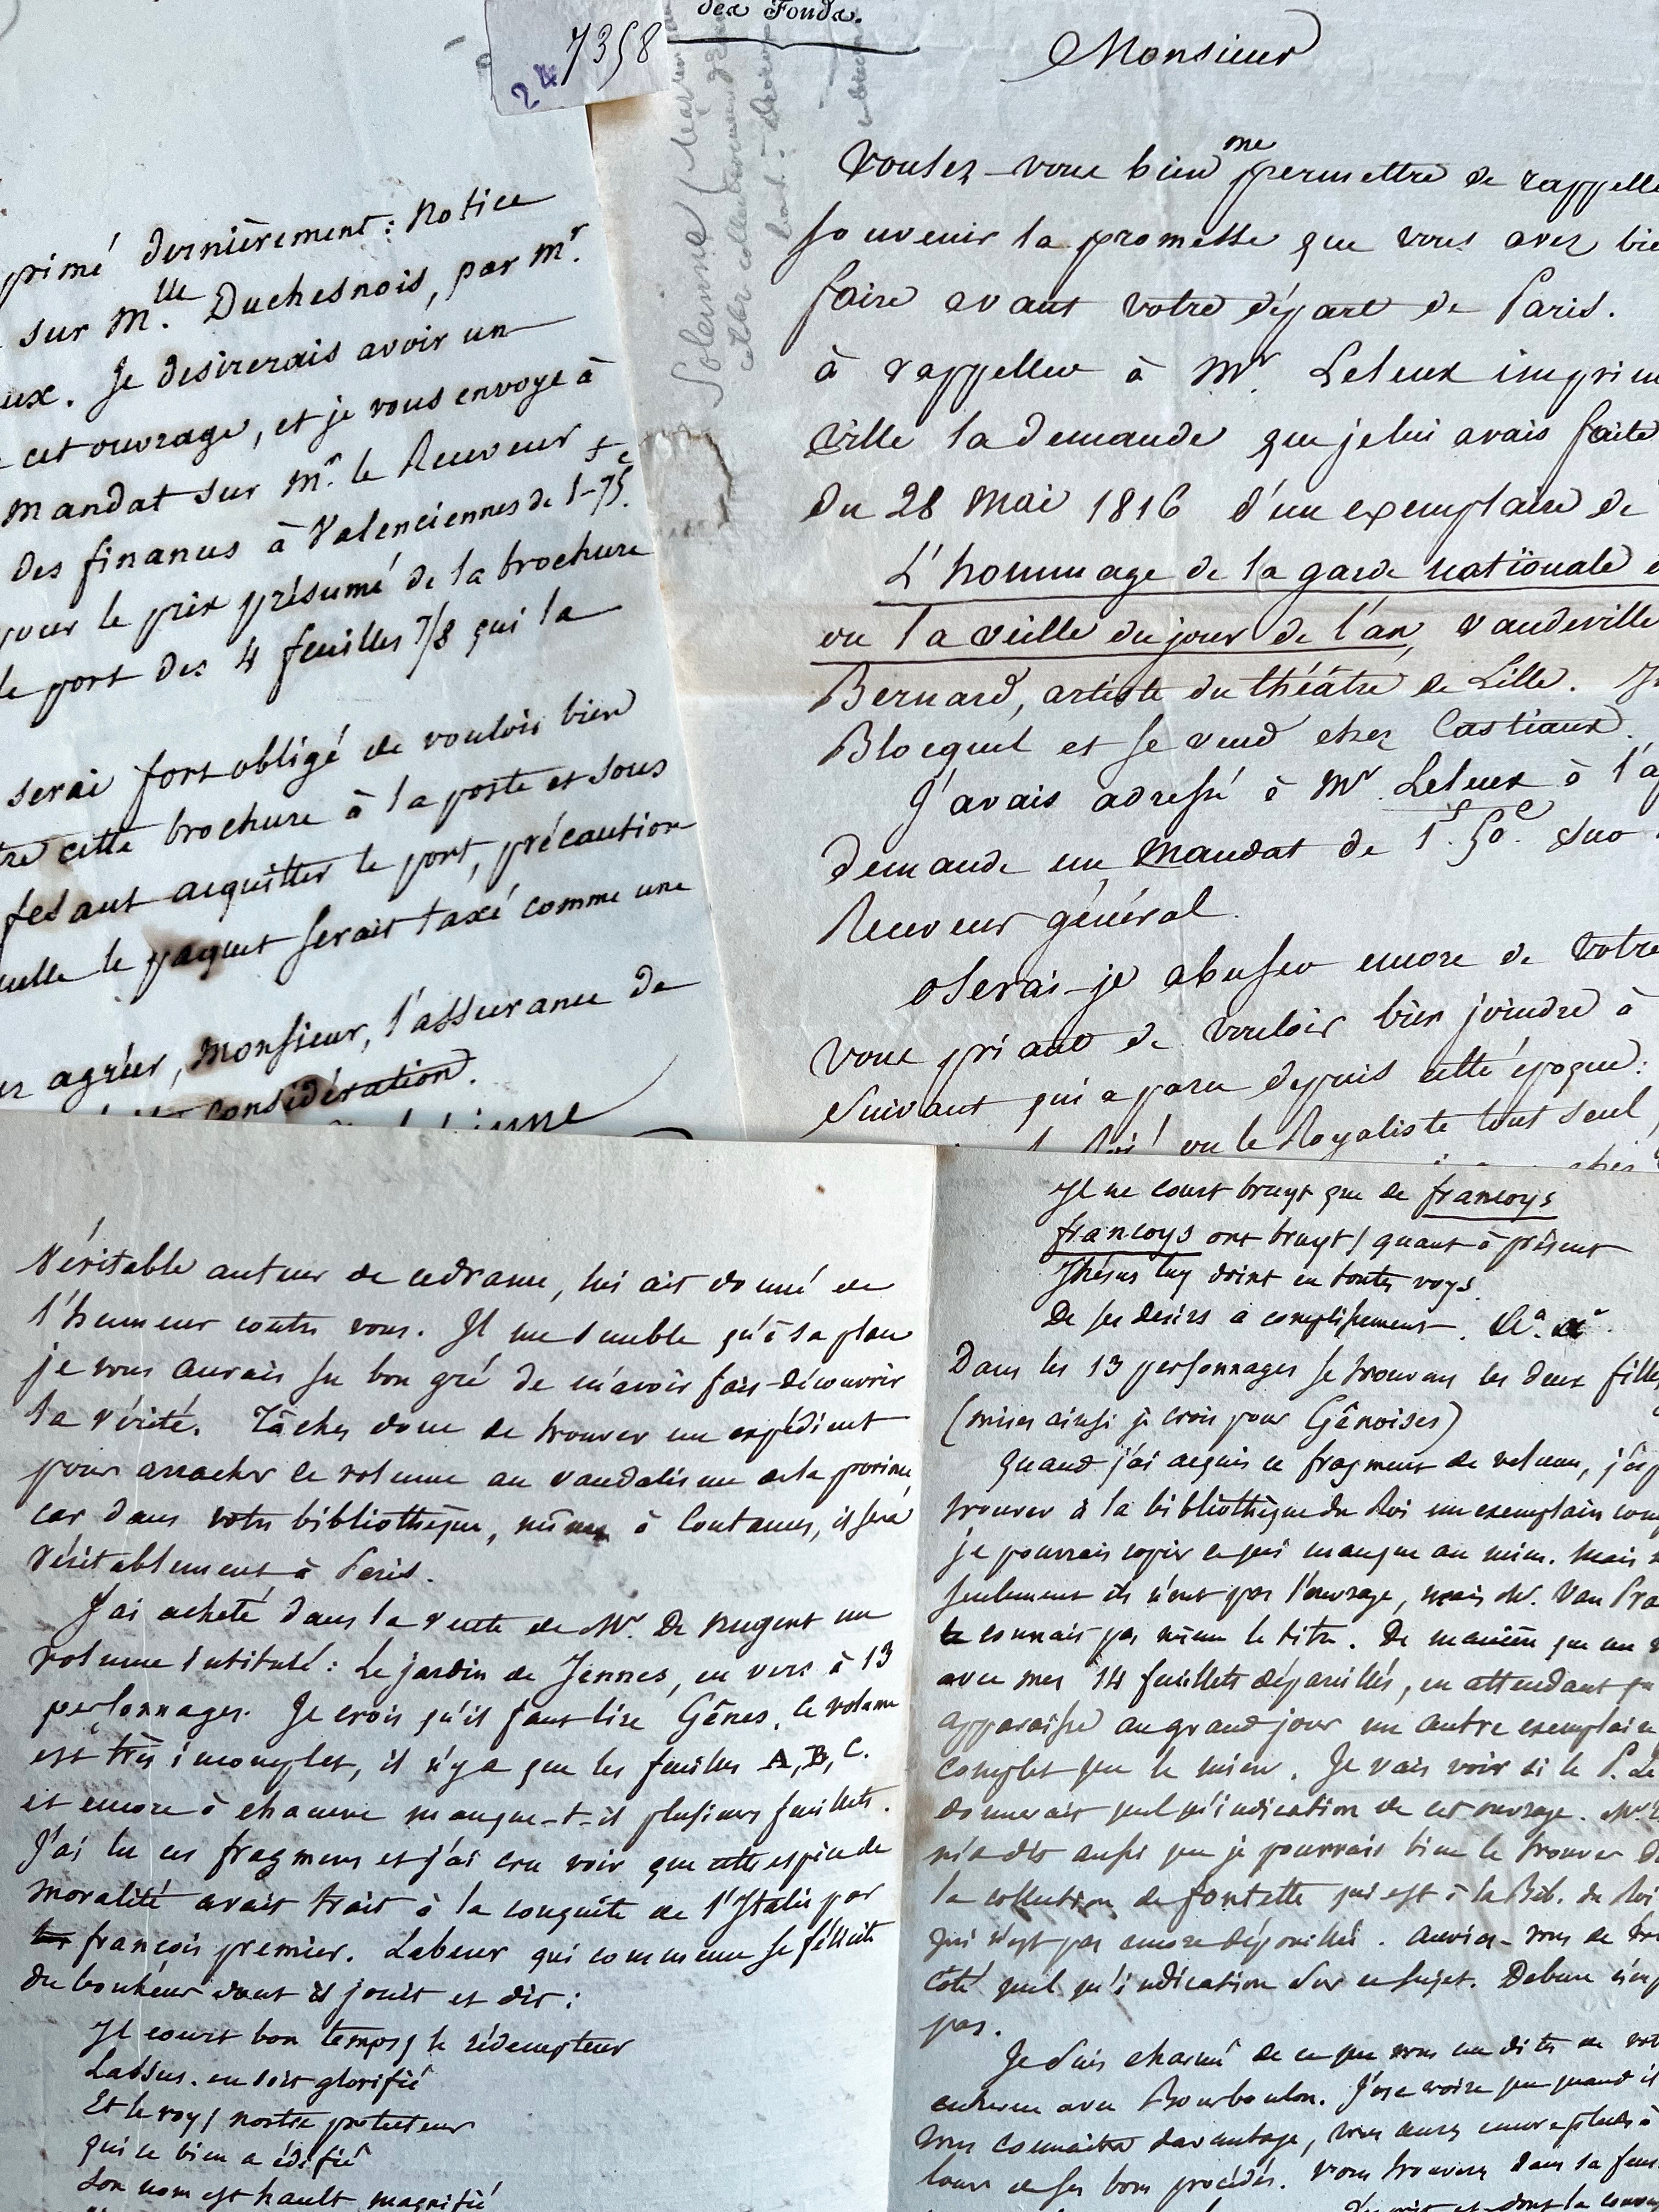 24 7358
primé dernièrement : Notice
sur Mlle Duchesnois, par Mr.
eux. Je desirerais avoir un
cet ouvrage, et je vous envoye à
mandat sur Mr. le Receveur
des finances à Valenciennes de 1f-75c.
pour le prix présumé de la brochure
le port des 4 feuilles 7/8 qui la
serai fort obligé de vouloir bien
tre cette brochure à la poste et sous
fesant acquitter le port, précaution
uelle le paquet serait taxé comme une
ez agréer, Monsieur, l'assurance de
considération.
des Fonds.
Soleinne
Monsieur
Voulez-vous bien me permettre de rappelle
souvenir la promesse que vous avez bie
faire avant votre départ de Paris.
à rappeller à Mr. Leleux imprim
ville la demande que je lui avais faite
du 28 Mai 1816 d'un exemplaire de
L'hommage de la garde nationale
ou la veille du jour de l'an, vaudeville
Bernard, artiste du théâtre de Lille.
Blocquel et se vend chez Castiaux.
J'avais adressé à Mr. Leleux à l'a
demande un mandat de 1f. 50c. sur
Receveur général.
oserai-je abuser encore de votre
vous priant de vouloir bien joindre à
suivant qui a paru depuis cette époque :
Roi ! ou le Royaliste tout seul,
chez
Véritable auteur de ce drame, lui ait donné de
l'humeur contre vous. Il me semble qu'à sa place
je vous aurais su bon gré de m'avoir fais découvrir
la vérité. Tâchez donc de trouver un expédient
pour arracher ce volume au vandalisme de la province
car dans votre bibliothèque, même à Coutances, il sera
véritablement à Paris.
J'ai acheté dans la vente de Mr. De Nugent un
volume intitulé : Le jardin de Jennes, en vers à 13
personnages. Je crois qu'il faut lire Gênes. Ce volume
est très incomplet, il n'y a que les feuilles A, B, C.
et encore à chacune manque-t-il plusieurs feuillets.
J'ai lu ces fragmens et j'ai cru voir que cette espèce de
moralité avait trait à la conquête de l'Italie par
françois premier. Labeur qui commence se félicite
du bonheur dont il jouit et dit :
Il court bon temps / le rédempteur
Lassus. en soit glorifié
Et le roy / nostre protecteur
qui ce bien a édifié
Son nom est hault magnifié
Il ne court bruyt que de francoys
francoys ont bruyt / quant à présent
Jhésus luy doint en toutes voys
De ses desirs acomplissement.
Dans les 13 personnages se trouvent les deux filles
(mises ainsi je crois pour Gênoises)
quand j'ai acquis ce fragment de volume, j'esp
trouver à la bibliothèque du Roi un exemplaire com
je pourrais copier ce qui manque au mien. Mais
seulement ils n'ont pas l'ouvrage, mais Mr. Van Pra
connais pas même le titre. De manière que me
avec mes 14 feuillets dépareillés, en attendant qu
apparaisse au grand jour un autre exemplaire
complet que le mien. Je vais voir si le P. Le
donnerait quelqu'indication de cet ouvrage. Mr
m'a dit aussi que je pourrais bien le trouver d
la collection de fontette qui est à la Bib. du Roi
qui n'est pas encore dépouillée. Auriez-vous de vo
côté quelqu'indication sur ce sujet. Debure n'en
pas.
Je suis charmé de ce que vous me dites de vot
avec Bourboulon. J'ose croire que quand il
vous connaitra davantage, vous aurez encore plus à
louer de ses bons procédés. Vous trouverez dans sa fem